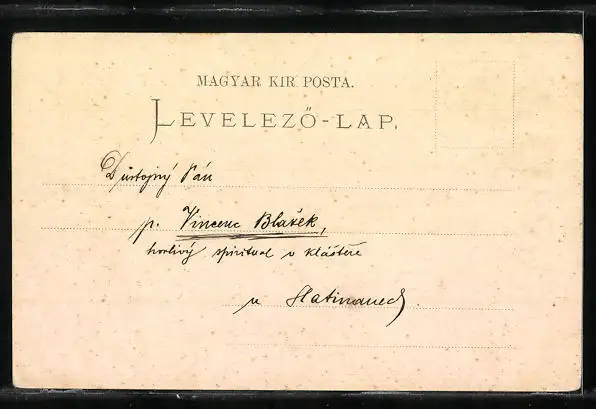 MAGYAR KIR POSTA.
LEVELEZŐ-LAP.
Důstojný Pán
p. Vincenc Blažek,
horlivý spiritual v klášteře
v Slatinanech.